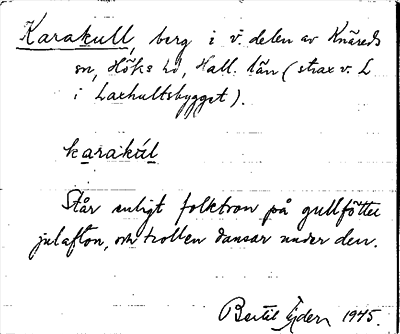 Karakull, berg i v. delen av Knäreds
sn, Höks hd, Hall. län (strax v. L
i Laxhultsbygget).
karakúl
Står enligt folktron på gullfötter
julafton, och trollen dansar under den.
Bertil Ejder 1945.